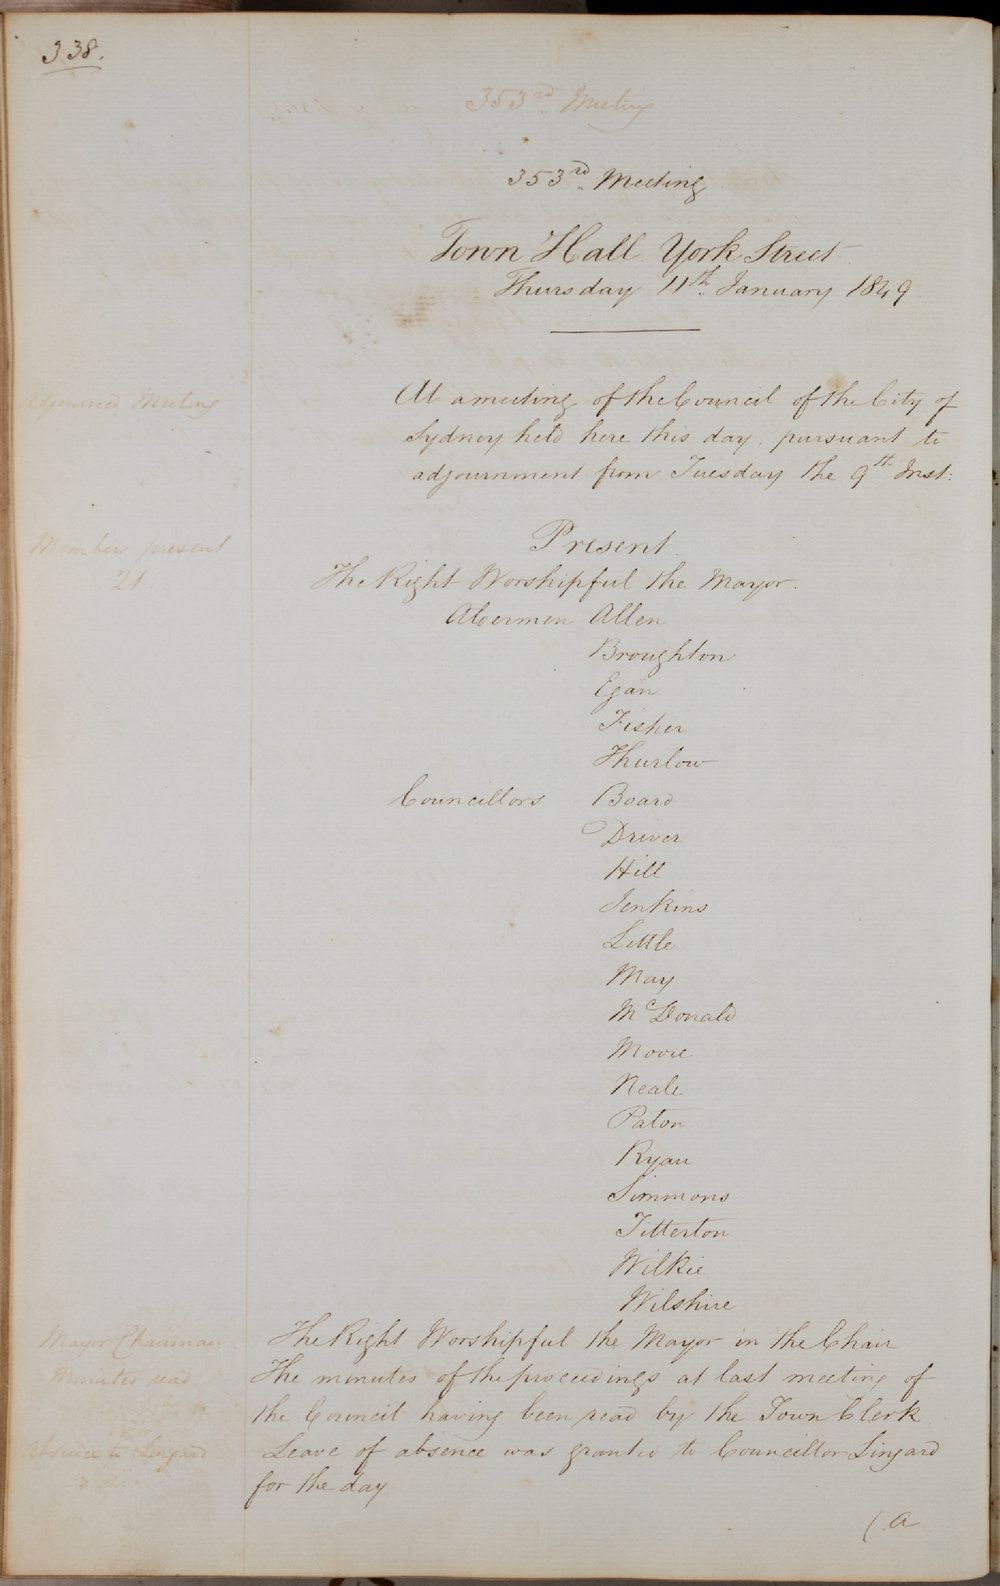 338.
353rd Meeting
353rd Meeting
Town Hall York Street
Thursday 11th January 1849
Adjourned Meeting
At a meeting of the Council of the City of
Sydney held here this day, pursuant to
adjournment from Tuesday the 9th Inst:
Present
Members present
21
The Right Worshipful the Mayor.
Aldermen Allen
Broughton
Egan
Fisher
Thurlow
Councillors Board
Driver
Hill
Jenkins
Little
May
McDonald
Moore
Neale
Paton
Ryan
Simmons
Titterton
Wilkie
Wilshire
Mayor Chairman
The Right Worshipful the Mayor in the Chair
Minutes read
The minutes of the proceedings at last meeting of
the Council having been read by the Town Clerk
Absence to Lingard
Leave of absence was granted to Councillor Lingard
for the day
(A